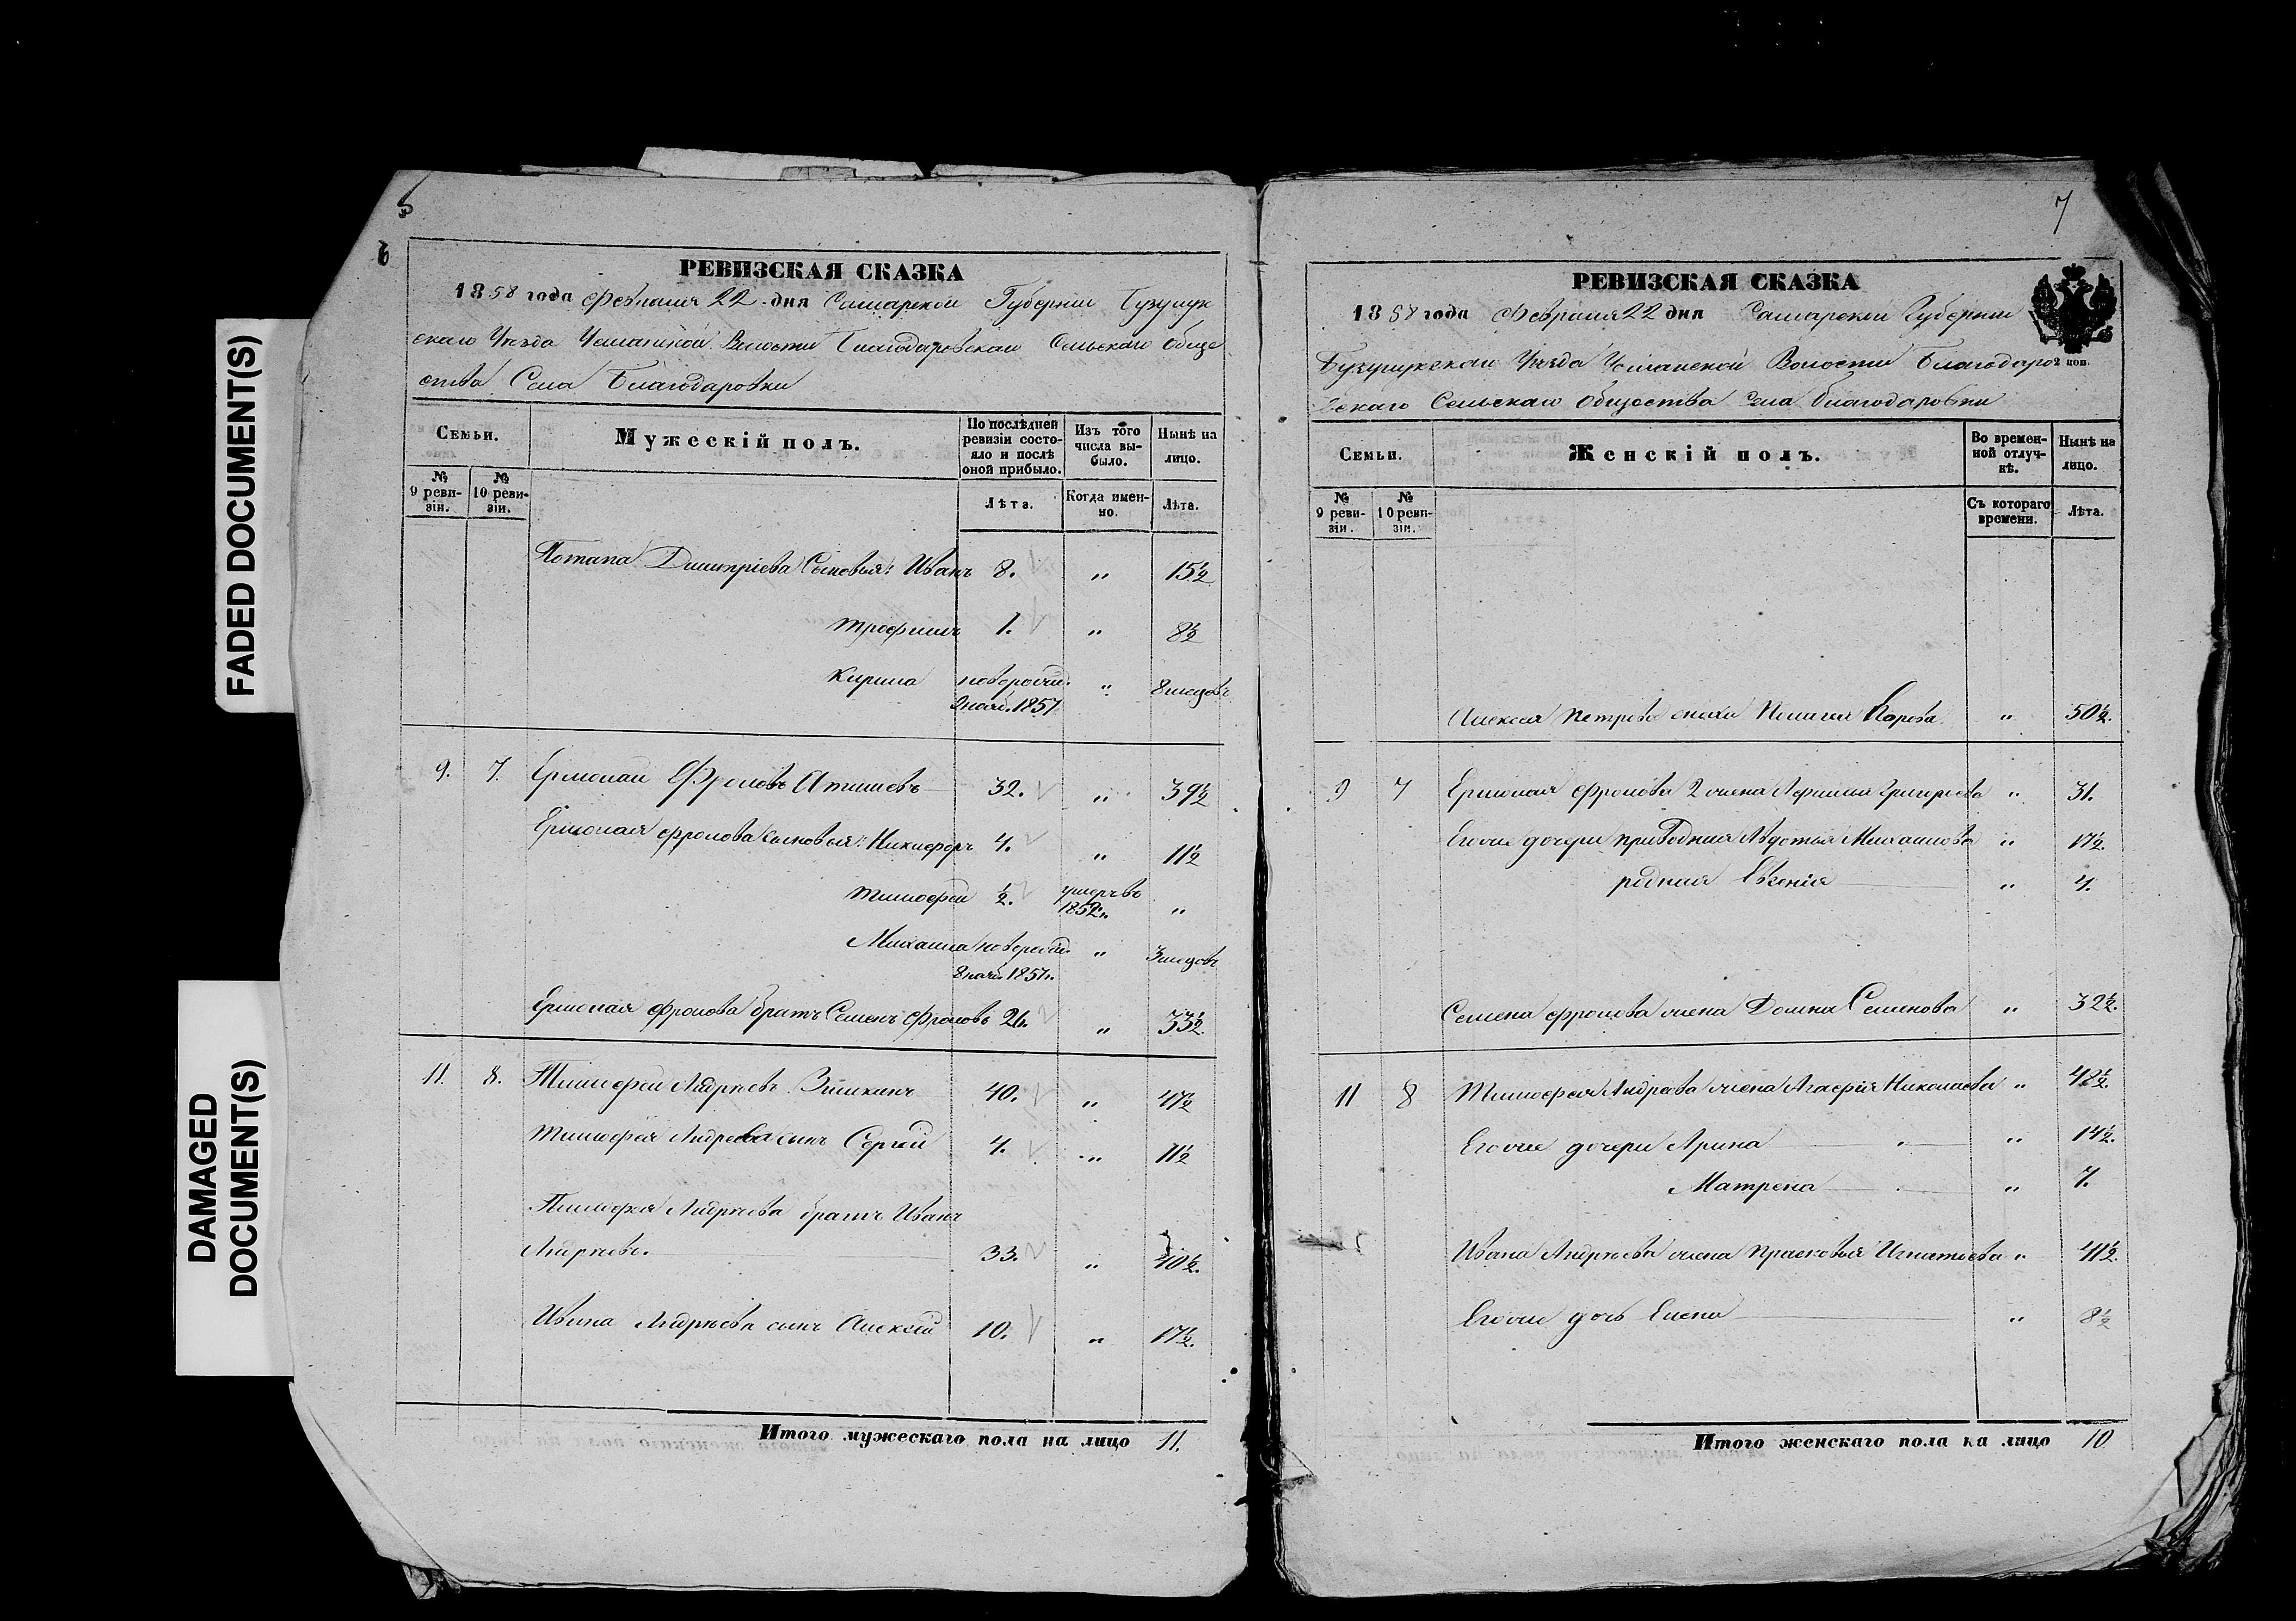 FADED DOCUMENT(S)
DAMAGED
DOCUMENT(S)
6
РЕВИЗСКАЯ СКАЗКА
1858 года Февраля 22 дня Самарской Губерніи Бузулук
скаго Уѣзда Волости Благодаровскаго Сельскаго Обще
ства Села Благодаровки
Семьи.
Мужескій полъ.
По послѣдней ревизіи состояло и послѣ оной прибыло.
Изъ того числа выбыло.
Нынѣ на лицо.
№ 9 ревизіи.
№ 10 ревизіи.
Лѣта.
Когда именно.
Лѣта.
Потапа Димитріева Сыновья: Иванъ 8. " 15½
Трофимъ 1. " 8½
Кирила новорожд. 1857 " 8 месяцовъ
9. 7. Ермолай Фроловъ 32. " 39½
Ермолая Фролова сыновья: Никифоръ 4. " 11½
Тимофей ½. умеръ въ 1852 "
Михаила новорожд. 1857 " 3 месяцовъ
Ермолая Фролова братъ Семенъ Фроловъ 26. " 33½.
11. 8. Тимофей Андреевъ 40. " 47½
Тимофея Андреева сынъ Сергей 4. " 11½
Тимофея Андреева братъ Иванъ
Андреевъ. 33. " 40½.
Ивана Андреева сынъ Алексей 10. " 17½.
Итого мужескаго пола на лицо 11.
7
РЕВИЗСКАЯ СКАЗКА
1858 года Февраля 22 дня Самарской Губерніи
Бузулукскаго Уѣзда Волости Благодаро
вскаго Сельскаго Общества Села Благодаровки
коп.
Семьи.
Женскій полъ.
Во временной отлучкѣ.
Нынѣ на лицо.
№ 9 ревизіи.
№ 10 ревизіи.
Съ котораго времени.
Лѣта.
Алексея Петрова сноха " 50½.
9 7 Ермолая Фролова 2 жена Григорьева " 31.
Его же дочери приводная Авдотья Михаилова " 17½.
родная Евгенія " 4.
Семена Фролова жена Домна Семенова " 32½.
11 8 Тимофея Андреева жена Агафія Николаева " 48½.
Его же дочери Арина " 14½.
Матрена " 7.
Ивана Андреева жена Прасковья Игнатьева " 41½.
Его же дочь Елена " 8½
Итого женскаго пола на лицо 10